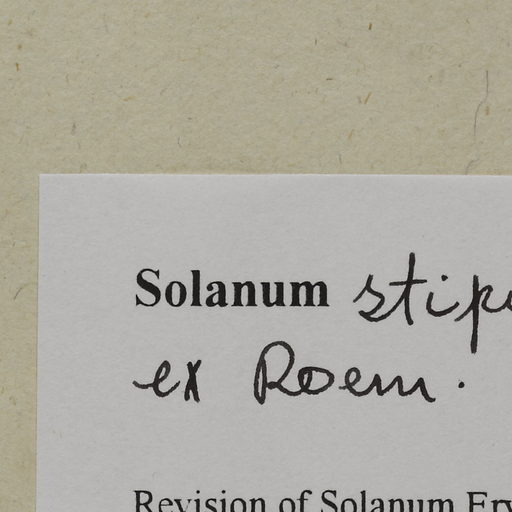 Solanum
ex Roem.
Revision of Solanum